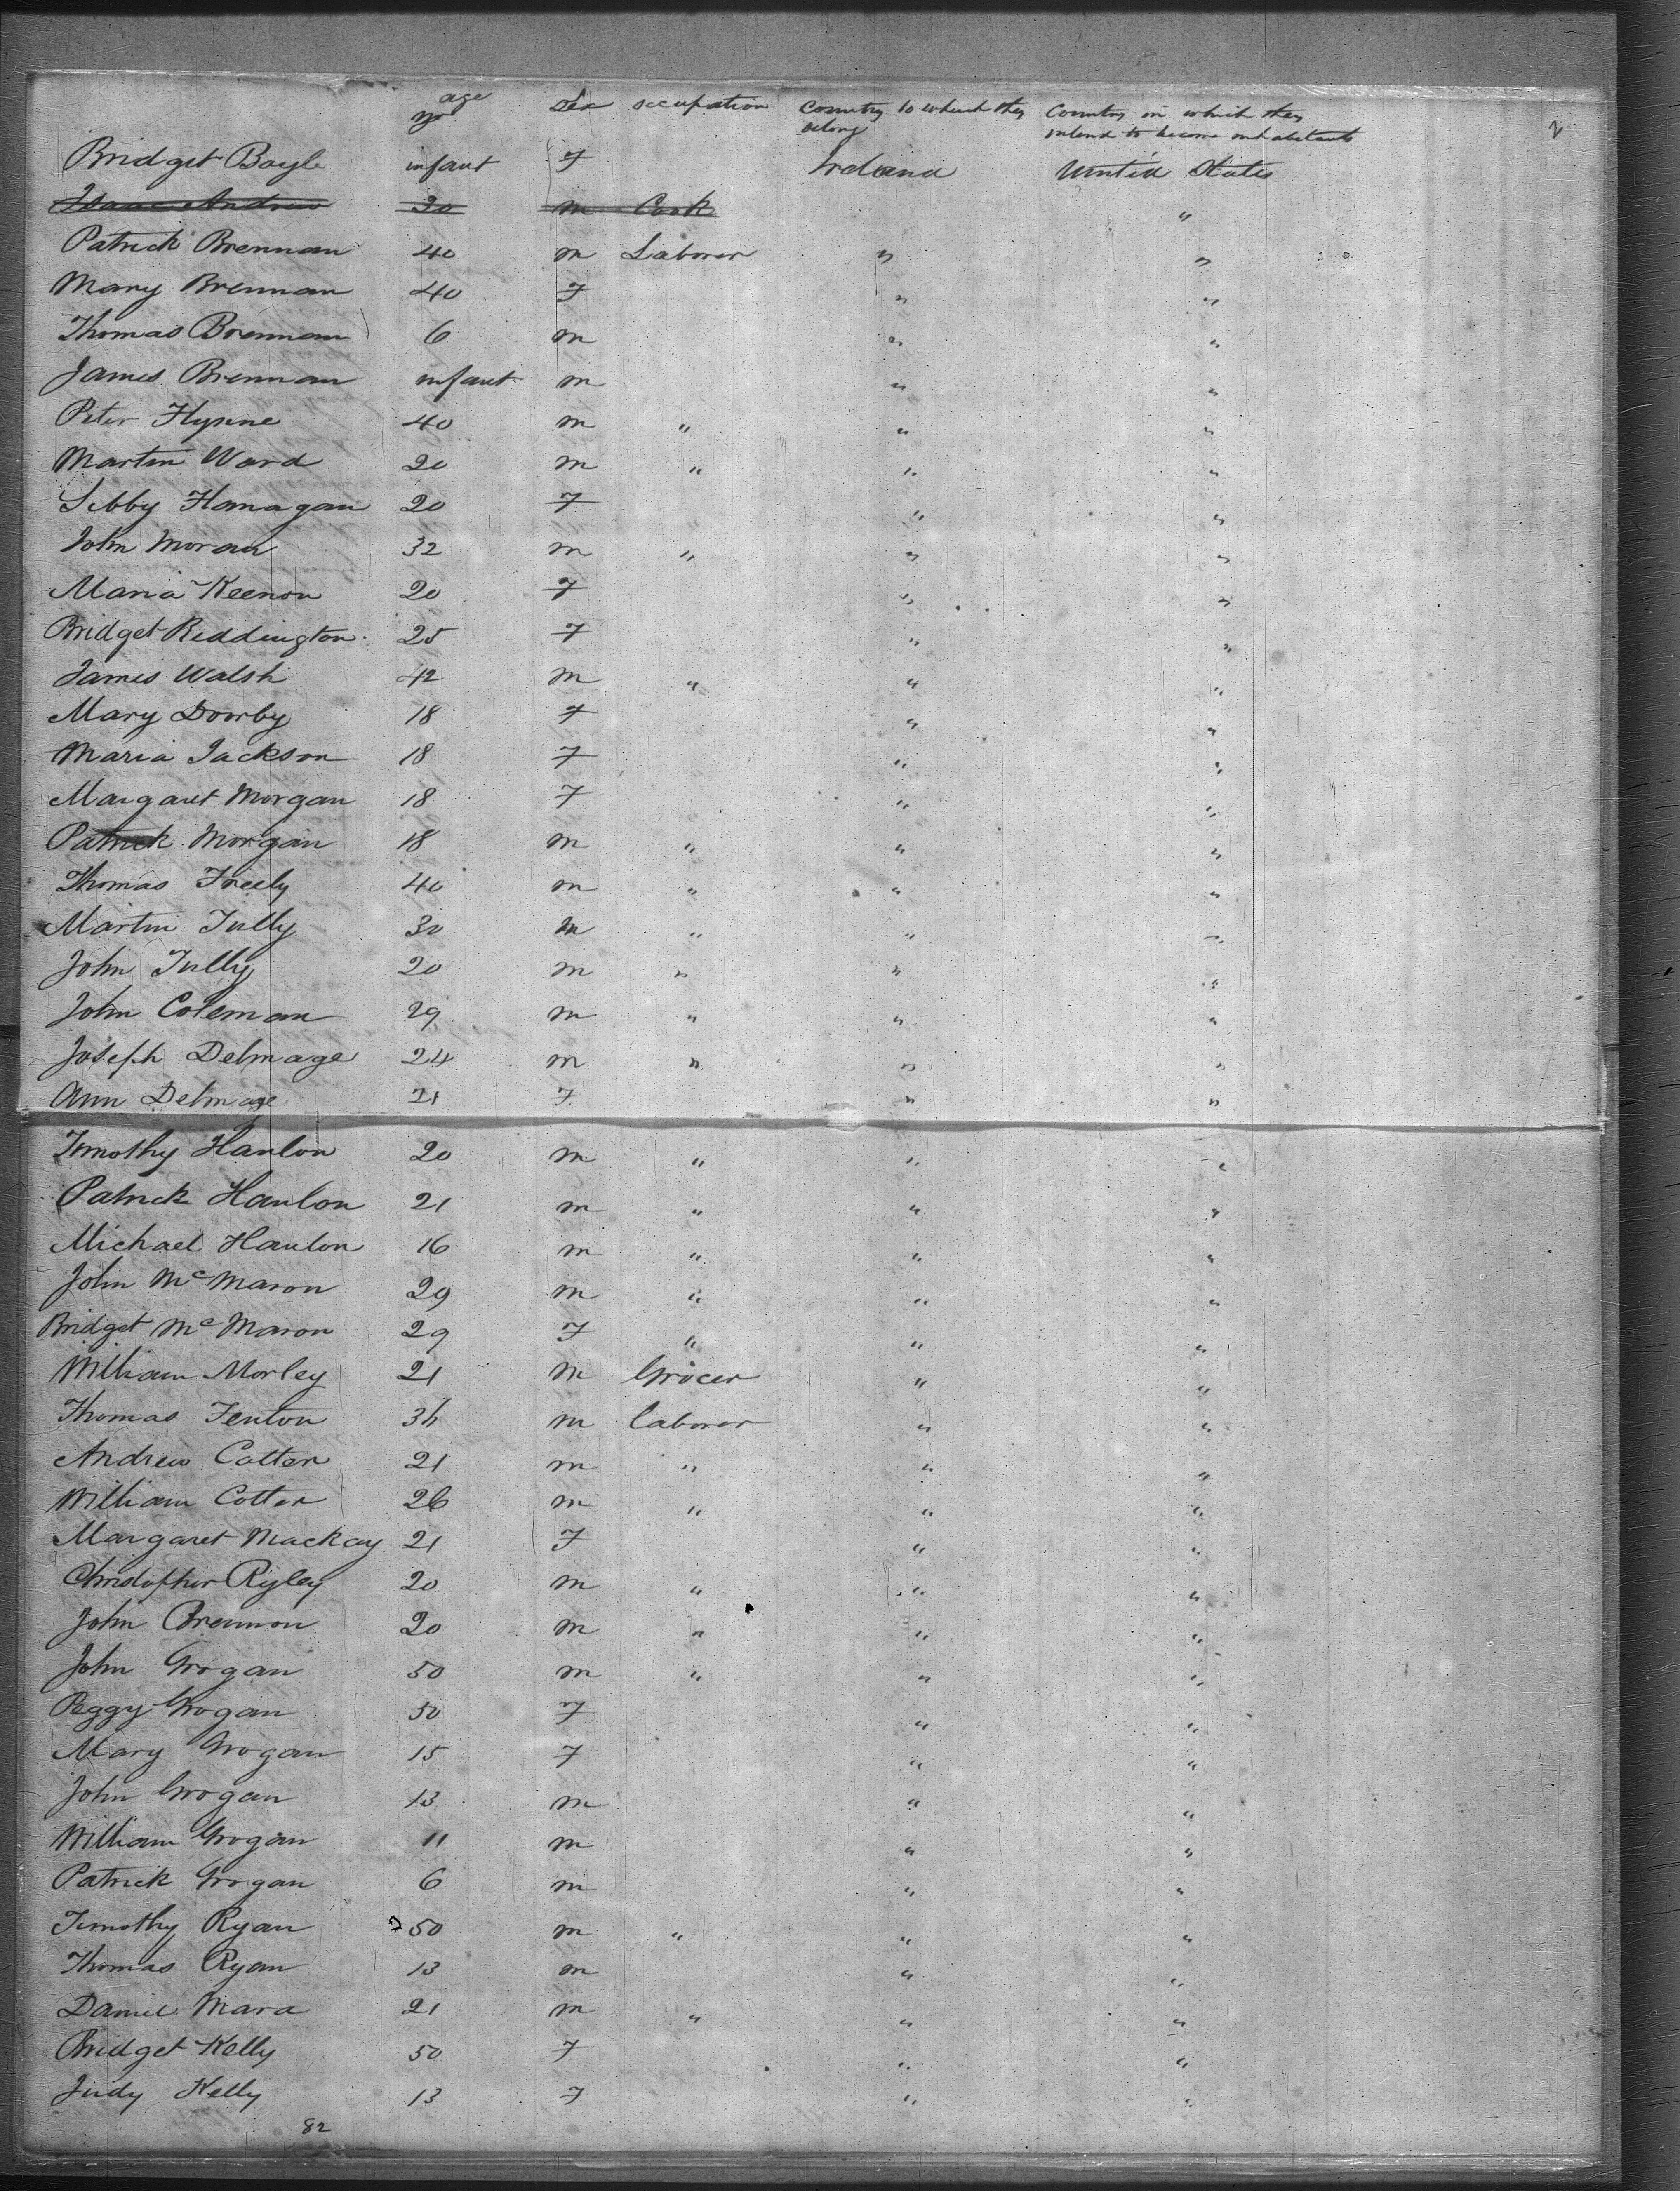 age
yrs Sex occupation Country to which they Country in which they 2
belong intend to become inhabitants
Bridget Boyle infant F Ireland United States
Isaac Andrew 30 m Cook "
Patrick Brennan 40 m Laborer " "
Mary Brennan 40 F " "
Thomas Brennan 6 m " "
James Brennan infant m " "
Peter Flynne 40 m " " "
Martin Ward 20 m " " "
Sibby Flanagan 20 F " "
John Moran 32 m " " "
Maria Keenon 20 F " "
Bridget Reddington 25 F " "
James Walsh 42 m " " "
Mary Doorby 18 F " "
Maria Jackson 18 F " "
Margaret Morgan 18 F " "
Patrick Morgan 18 m " " "
Thomas Freely 40 m " " "
Martin Tully 30 m " " "
John Tully 20 m " " "
John Coleman 29 m " " "
Joseph Delmage 24 m " " "
Ann Delmage 21 F " "
Timothy Hanlon 20 m " " "
Patrick Hanlon 21 m " " "
Michael Hanlon 16 m " " "
John McMaron 29 m " " "
Bridget McMaron 29 F " " "
William Morley 21 m Grocer " "
Thomas Fenton m laborer " "
Andrew Cotter 21 m " " "
William Cotter 26 m " " "
Margaret Mackay 21 F " "
Christopher Rigley 20 m " " "
John Brennon 20 m " " "
John Grogan 50 m " " "
Peggy Grogan 50 F " "
Mary Grogan 15 F " "
John Grogan 13 m " "
William Grogan 11 m " "
Patrick Grogan 6 m " "
Timothy Ryan 50 m " " "
Thomas Ryan 13 m " "
Daniel Mara 21 m " " "
Bridget Kelly 50 F " "
Judy Kelly 13 F " "
82